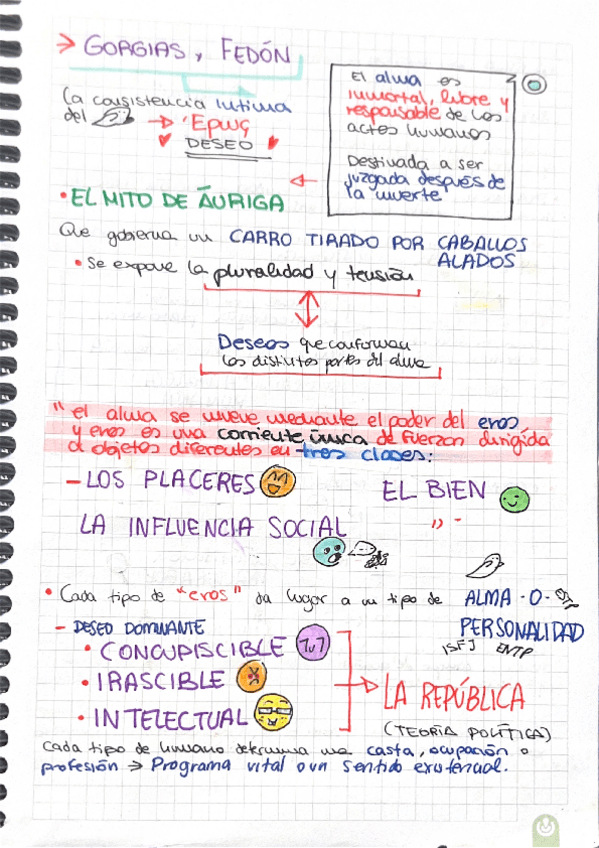 → GORGIAS, FEDÓN
La consistencia íntima
del → 'Ερως
DESEO
El alma es
inmortal, libre y
responsable de los
actos humanos
Destinada a ser
juzgada después de
la muerte
• EL MITO DE ÁURIGA
Que gobierna un CARRO TIRADO POR CABALLOS
ALADOS
• Se expone la pluralidad y tensión
Deseos que conforman
las distintas partes del alma
" el alma se mueve mediante el poder del eros
y eros es una corriente única de fuerzan dirigida
a objetos diferentes en tres clases:
- LOS PLACERES EL BIEN
LA INFLUENCIA SOCIAL " -
• Cada tipo de "eros" da lugar a un tipo de ALMA - O -
PERSONALIDAD
ISFJ ENTP
- DESEO DOMINANTE
• CONCUPISCIBLE
• IRASCIBLE
• INTELECTUAL
LA REPÚBLICA
(TEORÍA POLÍTICA)
Cada tipo de humano determina una casta, ocupación o
profesión → Programa vital o un sentido existencial.